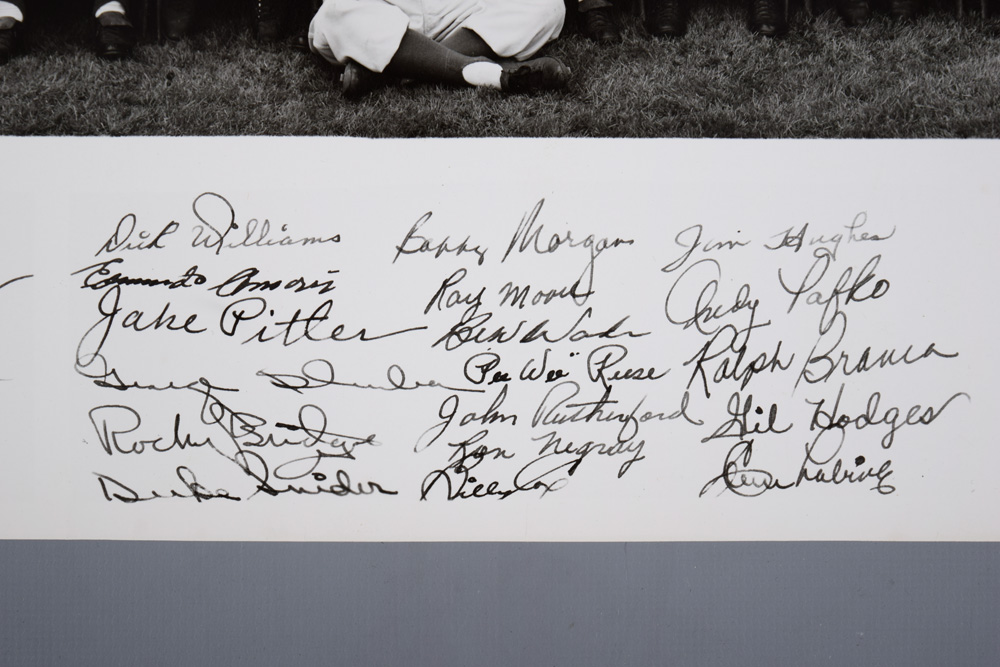 Dick Williams
Edmundo Amoros
Jake Pitler
George Shuba
Rocky Bridges
Duke Snider
Bobby Morgan
Ray Moore
Ben Wade
Pee Wee Reese
John Rutherford
Ron Negray
Billy Cox
Jim Hughes
Andy Pafko
Ralph Branca
Gil Hodges
Clem Labine